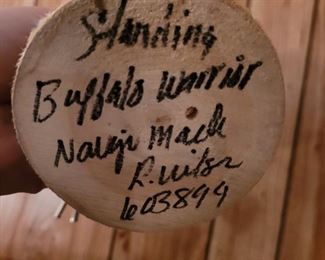 Standing
Buffalo Warrior
Navajo Made
R. Wilson
603899